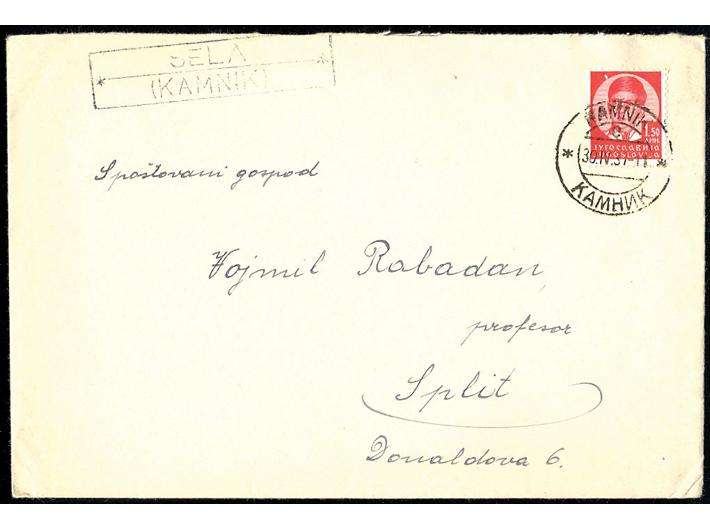 * SELA *
(KAMNIK)
1.50
ДИН.
ЈУГОСЛАВИЈА
JUGOSLAVIJA
KAMNIK
* 30.IV.37-11 *
КАМНИК
Spoštovani gospod
Vojmil Rabadan,
profesor
Split
Donaldova 6.